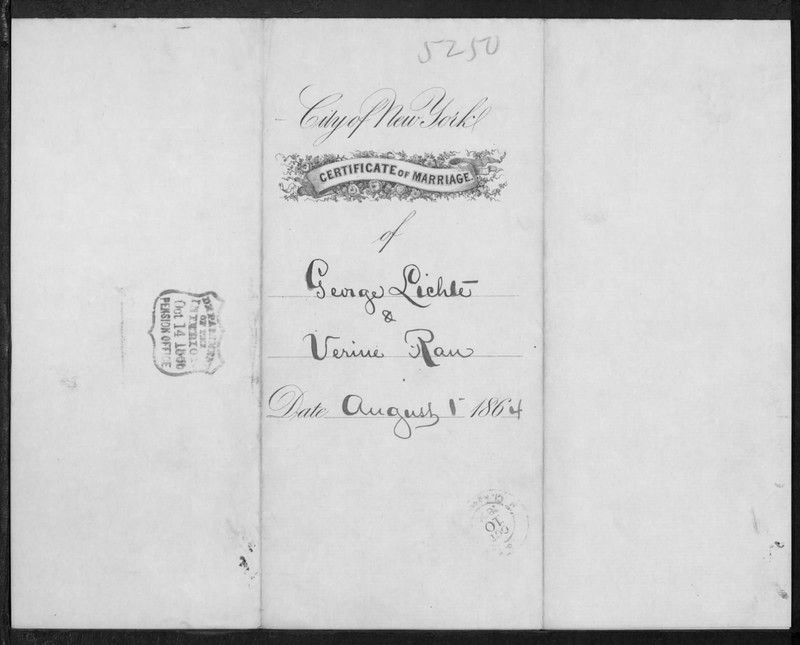 5250
City of New York
CERTIFICATE OF MARRIAGE.
of
George Lichte
&
Verine Rau
Date August 1 1864
DEPARTMENT
OF THE
INTERIOR
Oct 14 1866
PENSION OFFICE
OCT
10